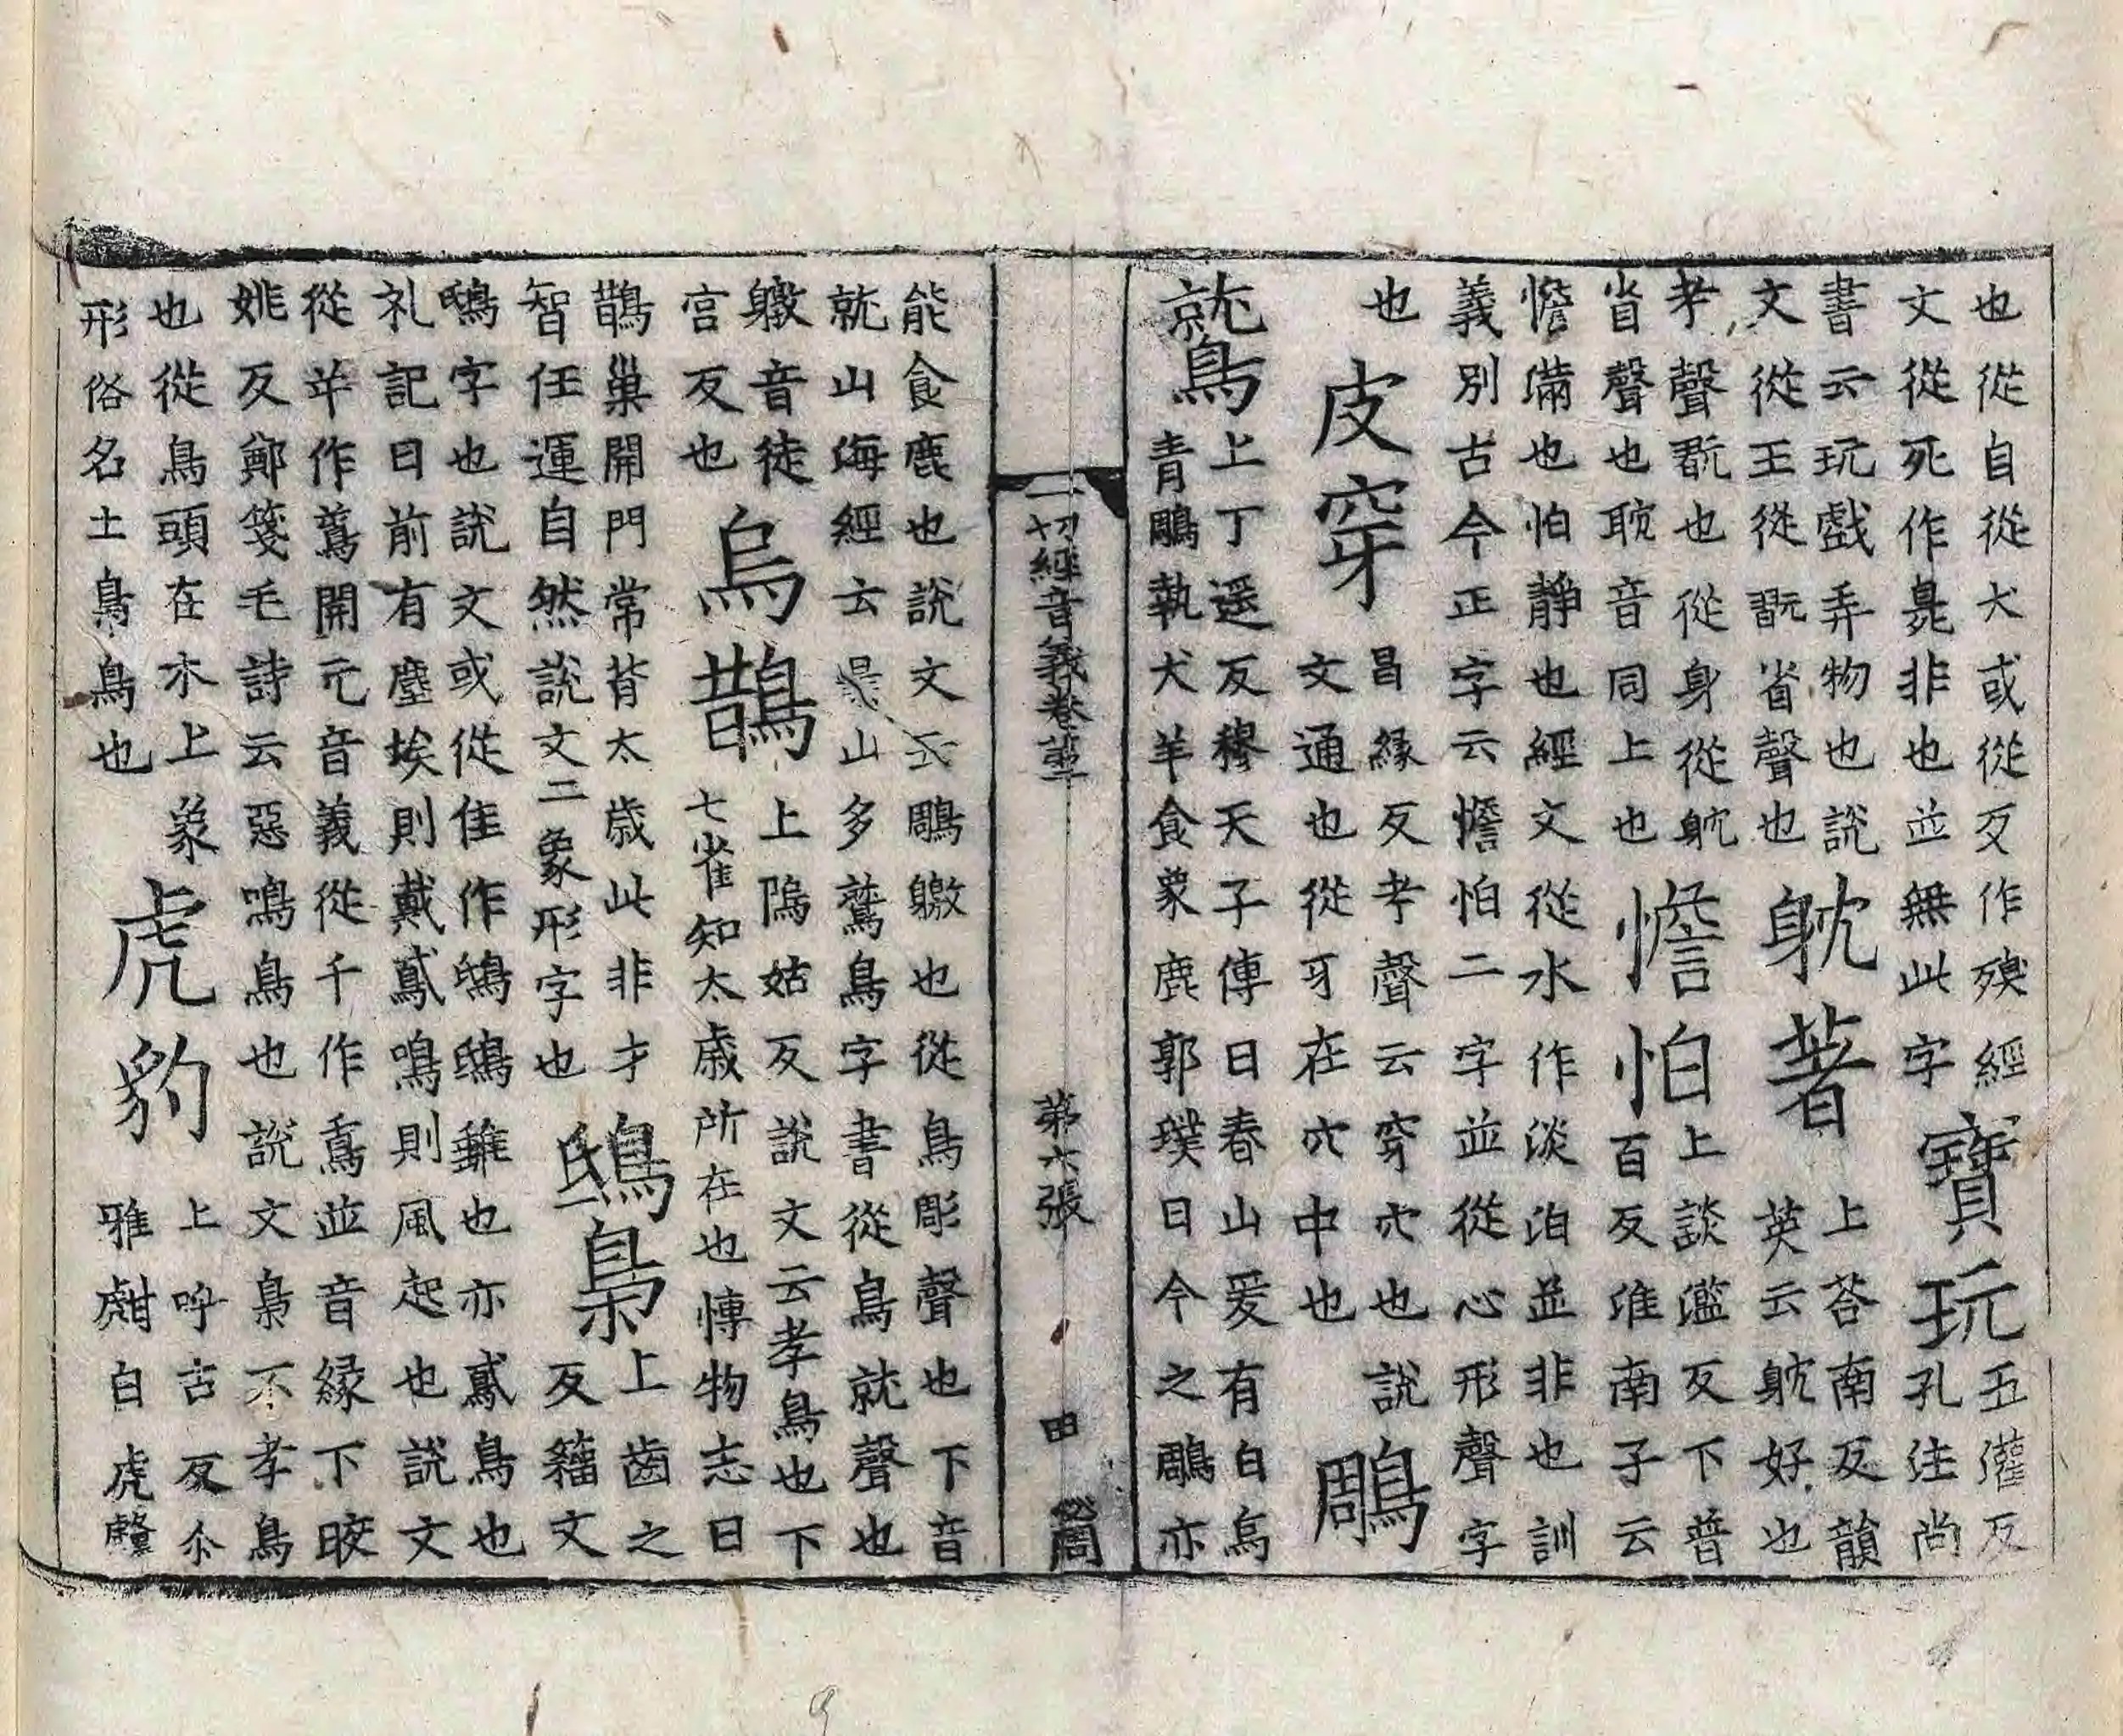 也從自從犬或從歹作殠經
文從死作臰非也並無此字
寶玩
五灌反
孔注尚
書云玩戲弄物也說
文從王從翫省聲也
躭著
上荅南反韻
英云躭好也
孝聲翫也從身從躭
省聲也耽音同上也
憺怕
上談濫反下普
百反淮南子云
憺滿也怕靜也經文從水作淡泊並非也訓
義別古今正字云憺怕二字並從心形聲字
也
皮穿
昌緣反孝聲云穿穴也說
文通也從牙在穴中也
鵰
鷲
上丁遥反穆天子傳曰春山爰有白鳥
青鵰執犬羊食䝉鹿郭璞曰今之鵰亦
能食鹿也說文云鵰鷻也從鳥彫聲也下音
就山海經云景山多鷲鳥字書從鳥就聲也
鷻音徒
官反也
烏鵲
上隖姑反說文云孝鳥也下
七雀知太歲所在也慱物志曰
鵲巢開門常背太歲此非才
智任運自然說文二象形字也
鴟梟
上齒之
反籒文
鴟字也說文或從隹作鵄鴟雖也亦鳶鳥也
礼記曰前有塵埃則戴鳶鳴則風起也說文
從屰作鳶開元音義從千作鳶並音緣下晈
姚反鄭箋毛詩云惡鳴鳥也說文梟不孝鳥
也從鳥頭在木上象
形俗名土梟鳥也
虎豹
上呼古反尒
雅甝白虎
一切經音義卷苐二
苐六張
田